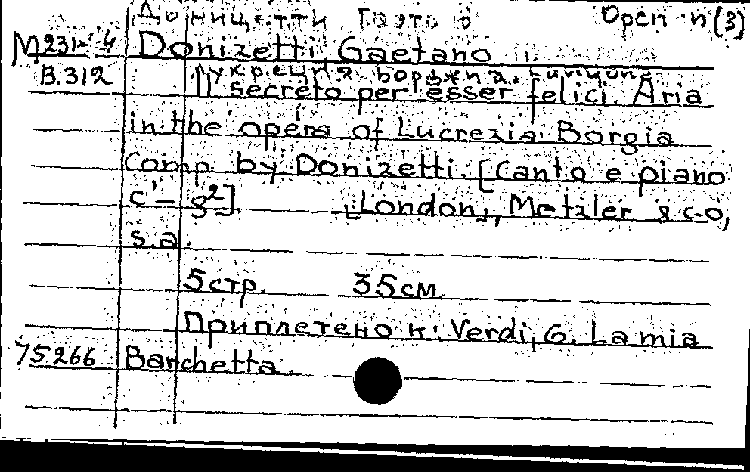 Доницетти Гаэтано Орсп п(3)
М231-4 Donizetti, Gaetano
В.312 Лукреция Борджиа.
Il secreto per esser felici. Aria
in the opera of Lucrezia Borgia
Comp. by Donizetti. [Canto e piano
c¹ – g²]. „London„, Metzler & co,
s.a.
5стр. 35см.
Приплетено к: Verdi, G. La mia
75266 Barchetta.